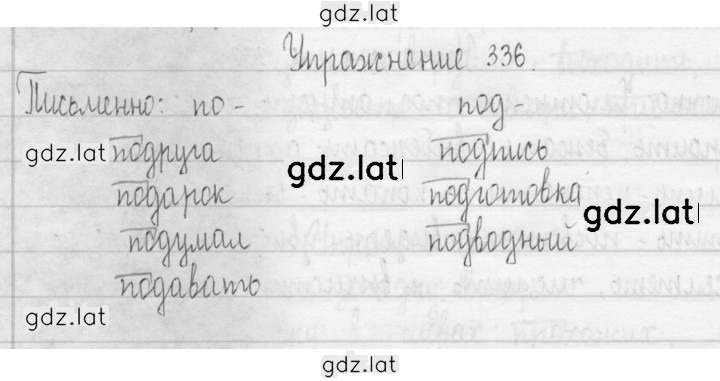 gdz.lat
Упражнение 336.
Письменно: по- под
gdz.lat подруга gdz.lat подпись
подарок подготовка gdz.lat
подумал подводный
подавать
gdz.lat
gdz.lat